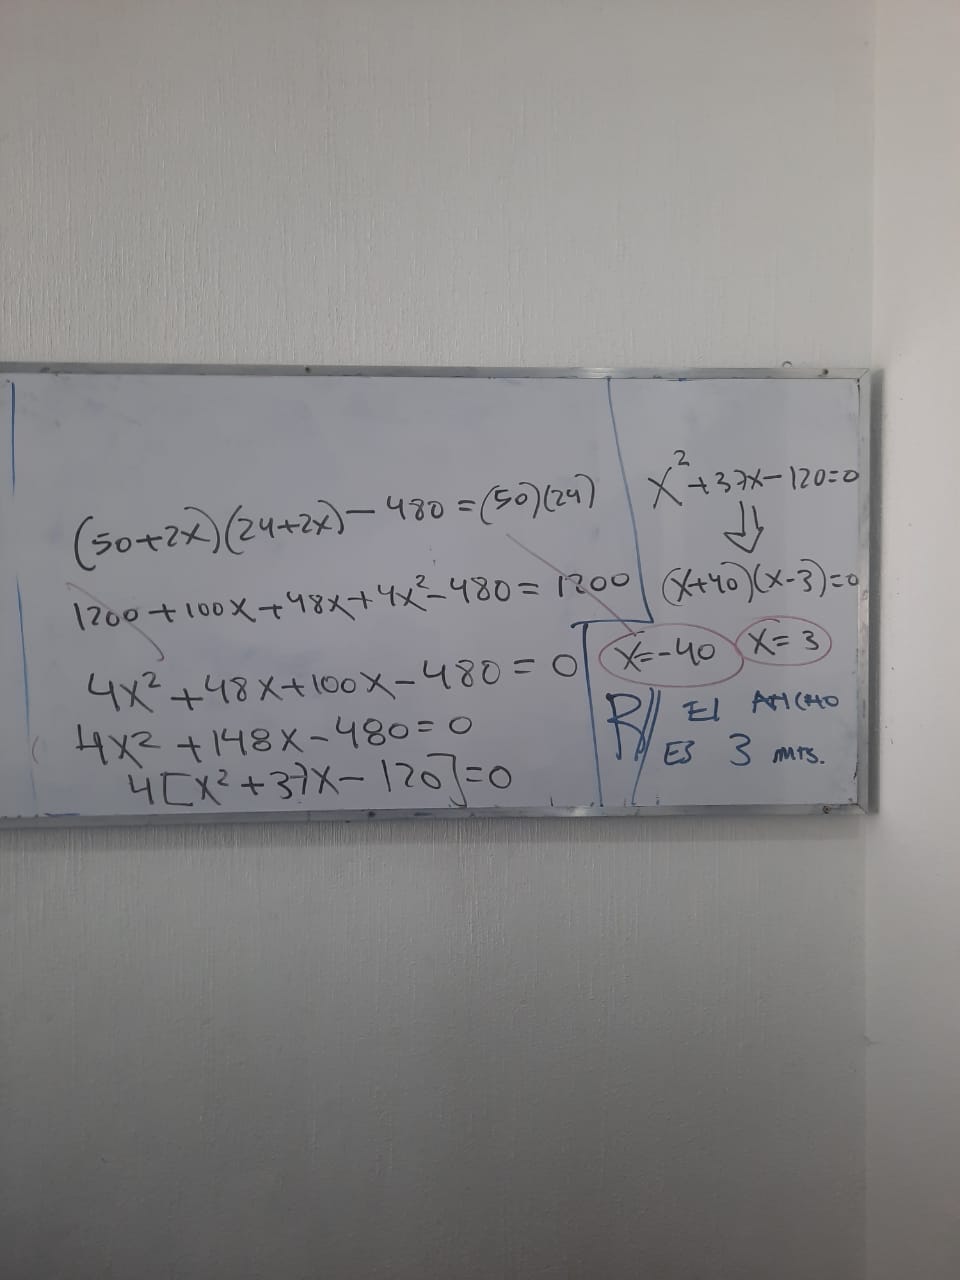 (50+2x)(24+2x)-480=(50)(24)
1200+100x+48x+4x²-480=1200
4x²+48x+100x-480=0
4x²+148x-480=0
4[x²+37x-120]=0
x²+37x-120=0
⇓
(x+40)(x-3)=0
x=-40 x=3
R// El ANCHO
ES 3 mts.